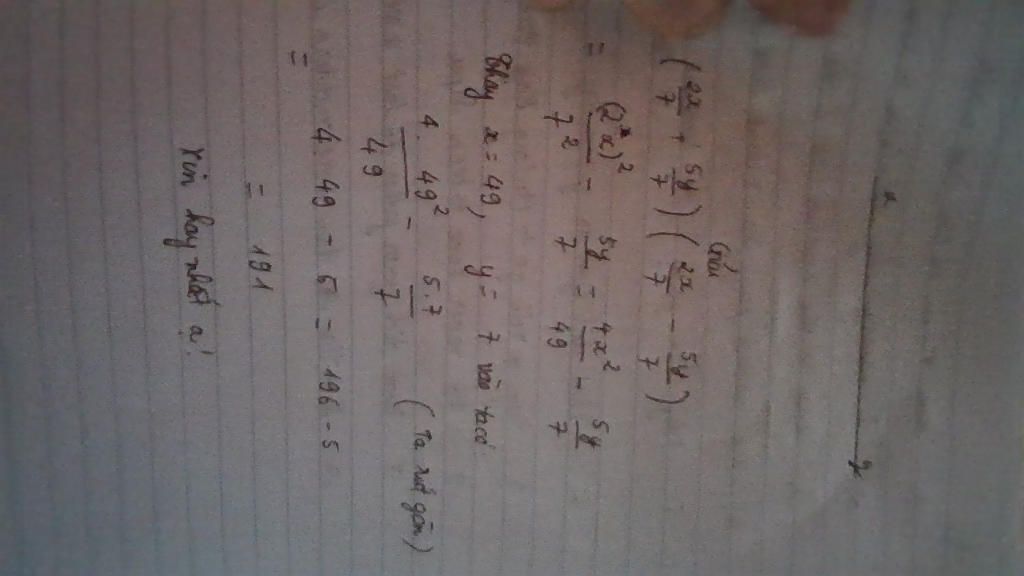 Giải
(2x/7 + 5y/7)(2x/7 - 5y/7)
= (2x)²/7² - 5y/7 = 4x²/49 - 5y/7
Thay x = 49, y = 7 vào ta có
4.49²/49 - 5.7/7 (Ta rút gọn)
= 4.49 - 5 = 196 - 5
= 191
Xin hay nhất ạ!